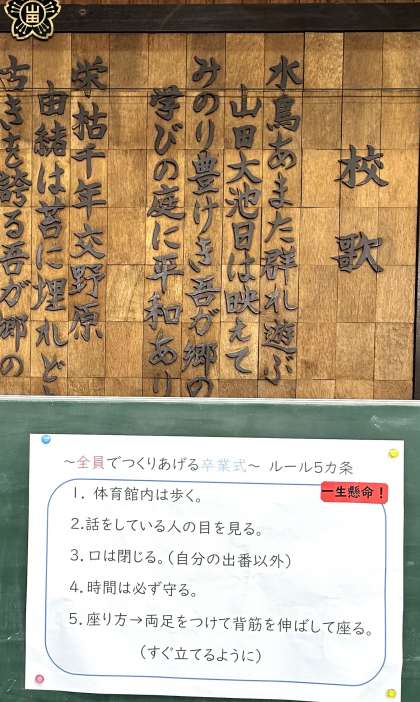 山田
校歌
水鳥あまた群れ遊ぶ
山田大池日は映えて
みのり豊けき吾が郷の
学びの庭に平和あり
栄枯千年交野原
由緒は苔に埋れど
古きを誇る吾が郷の
～全員でつくりあげる卒業式～ ルール5カ条
一生懸命！
1. 体育館内は歩く。
2.話をしている人の目を見る。
3. 口は閉じる。(自分の出番以外)
4. 時間は必ず守る。
5. 座り方→両足をつけて背筋を伸ばして座る。
(すぐ立てるように)